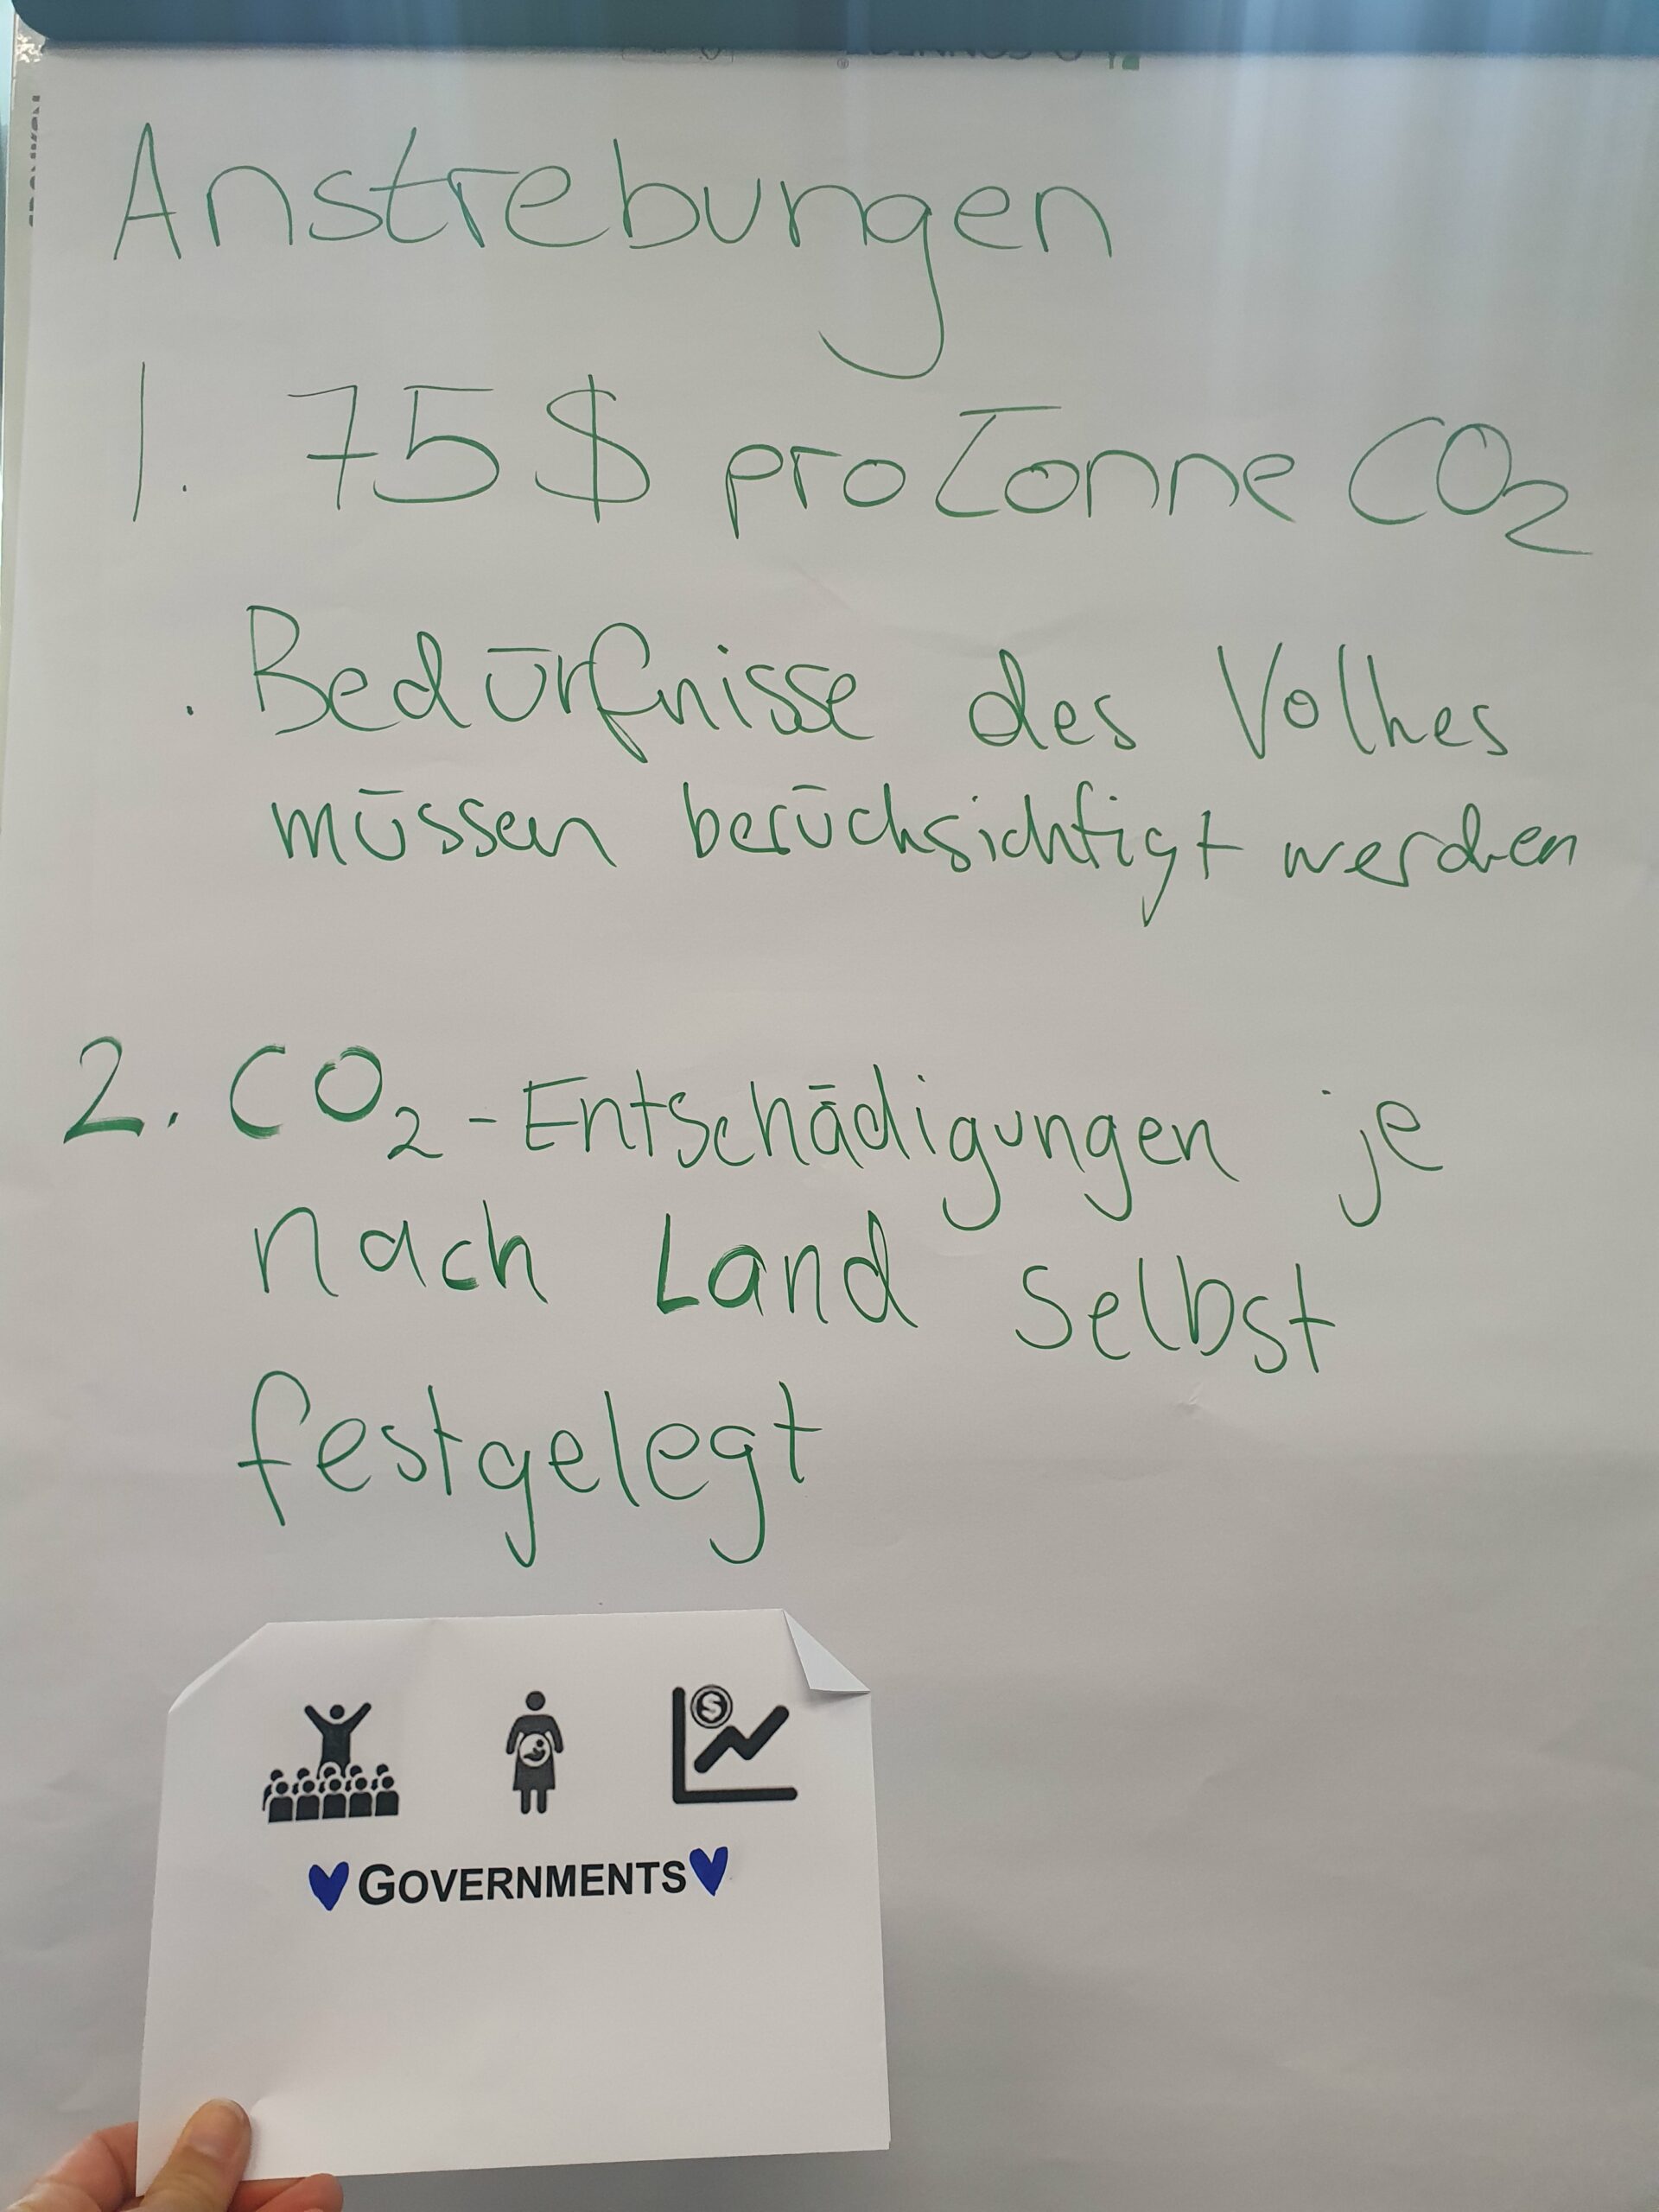 Anstrebungen
1. 75$ pro Tonne CO₂
. Bedürfnisse des Volkes
müssen berücksichtigt werden
2. CO₂-Entschädigungen je
nach Land selbst
festgelegt
$
GOVERNMENTS